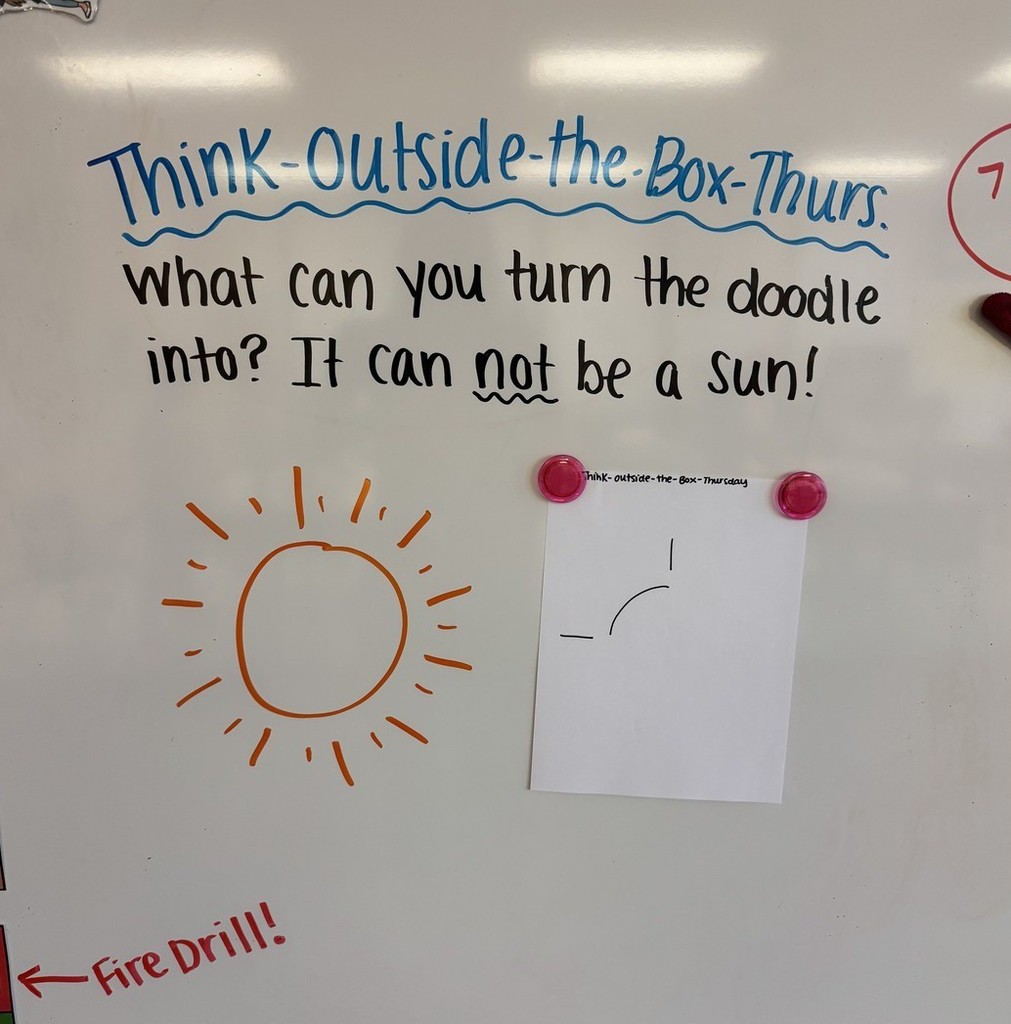 Think-Outside-the-Box-Thurs.
What can you turn the doodle
into? It can not be a sun!
Think-outside-the-Box-Thursday
Fire Drill!